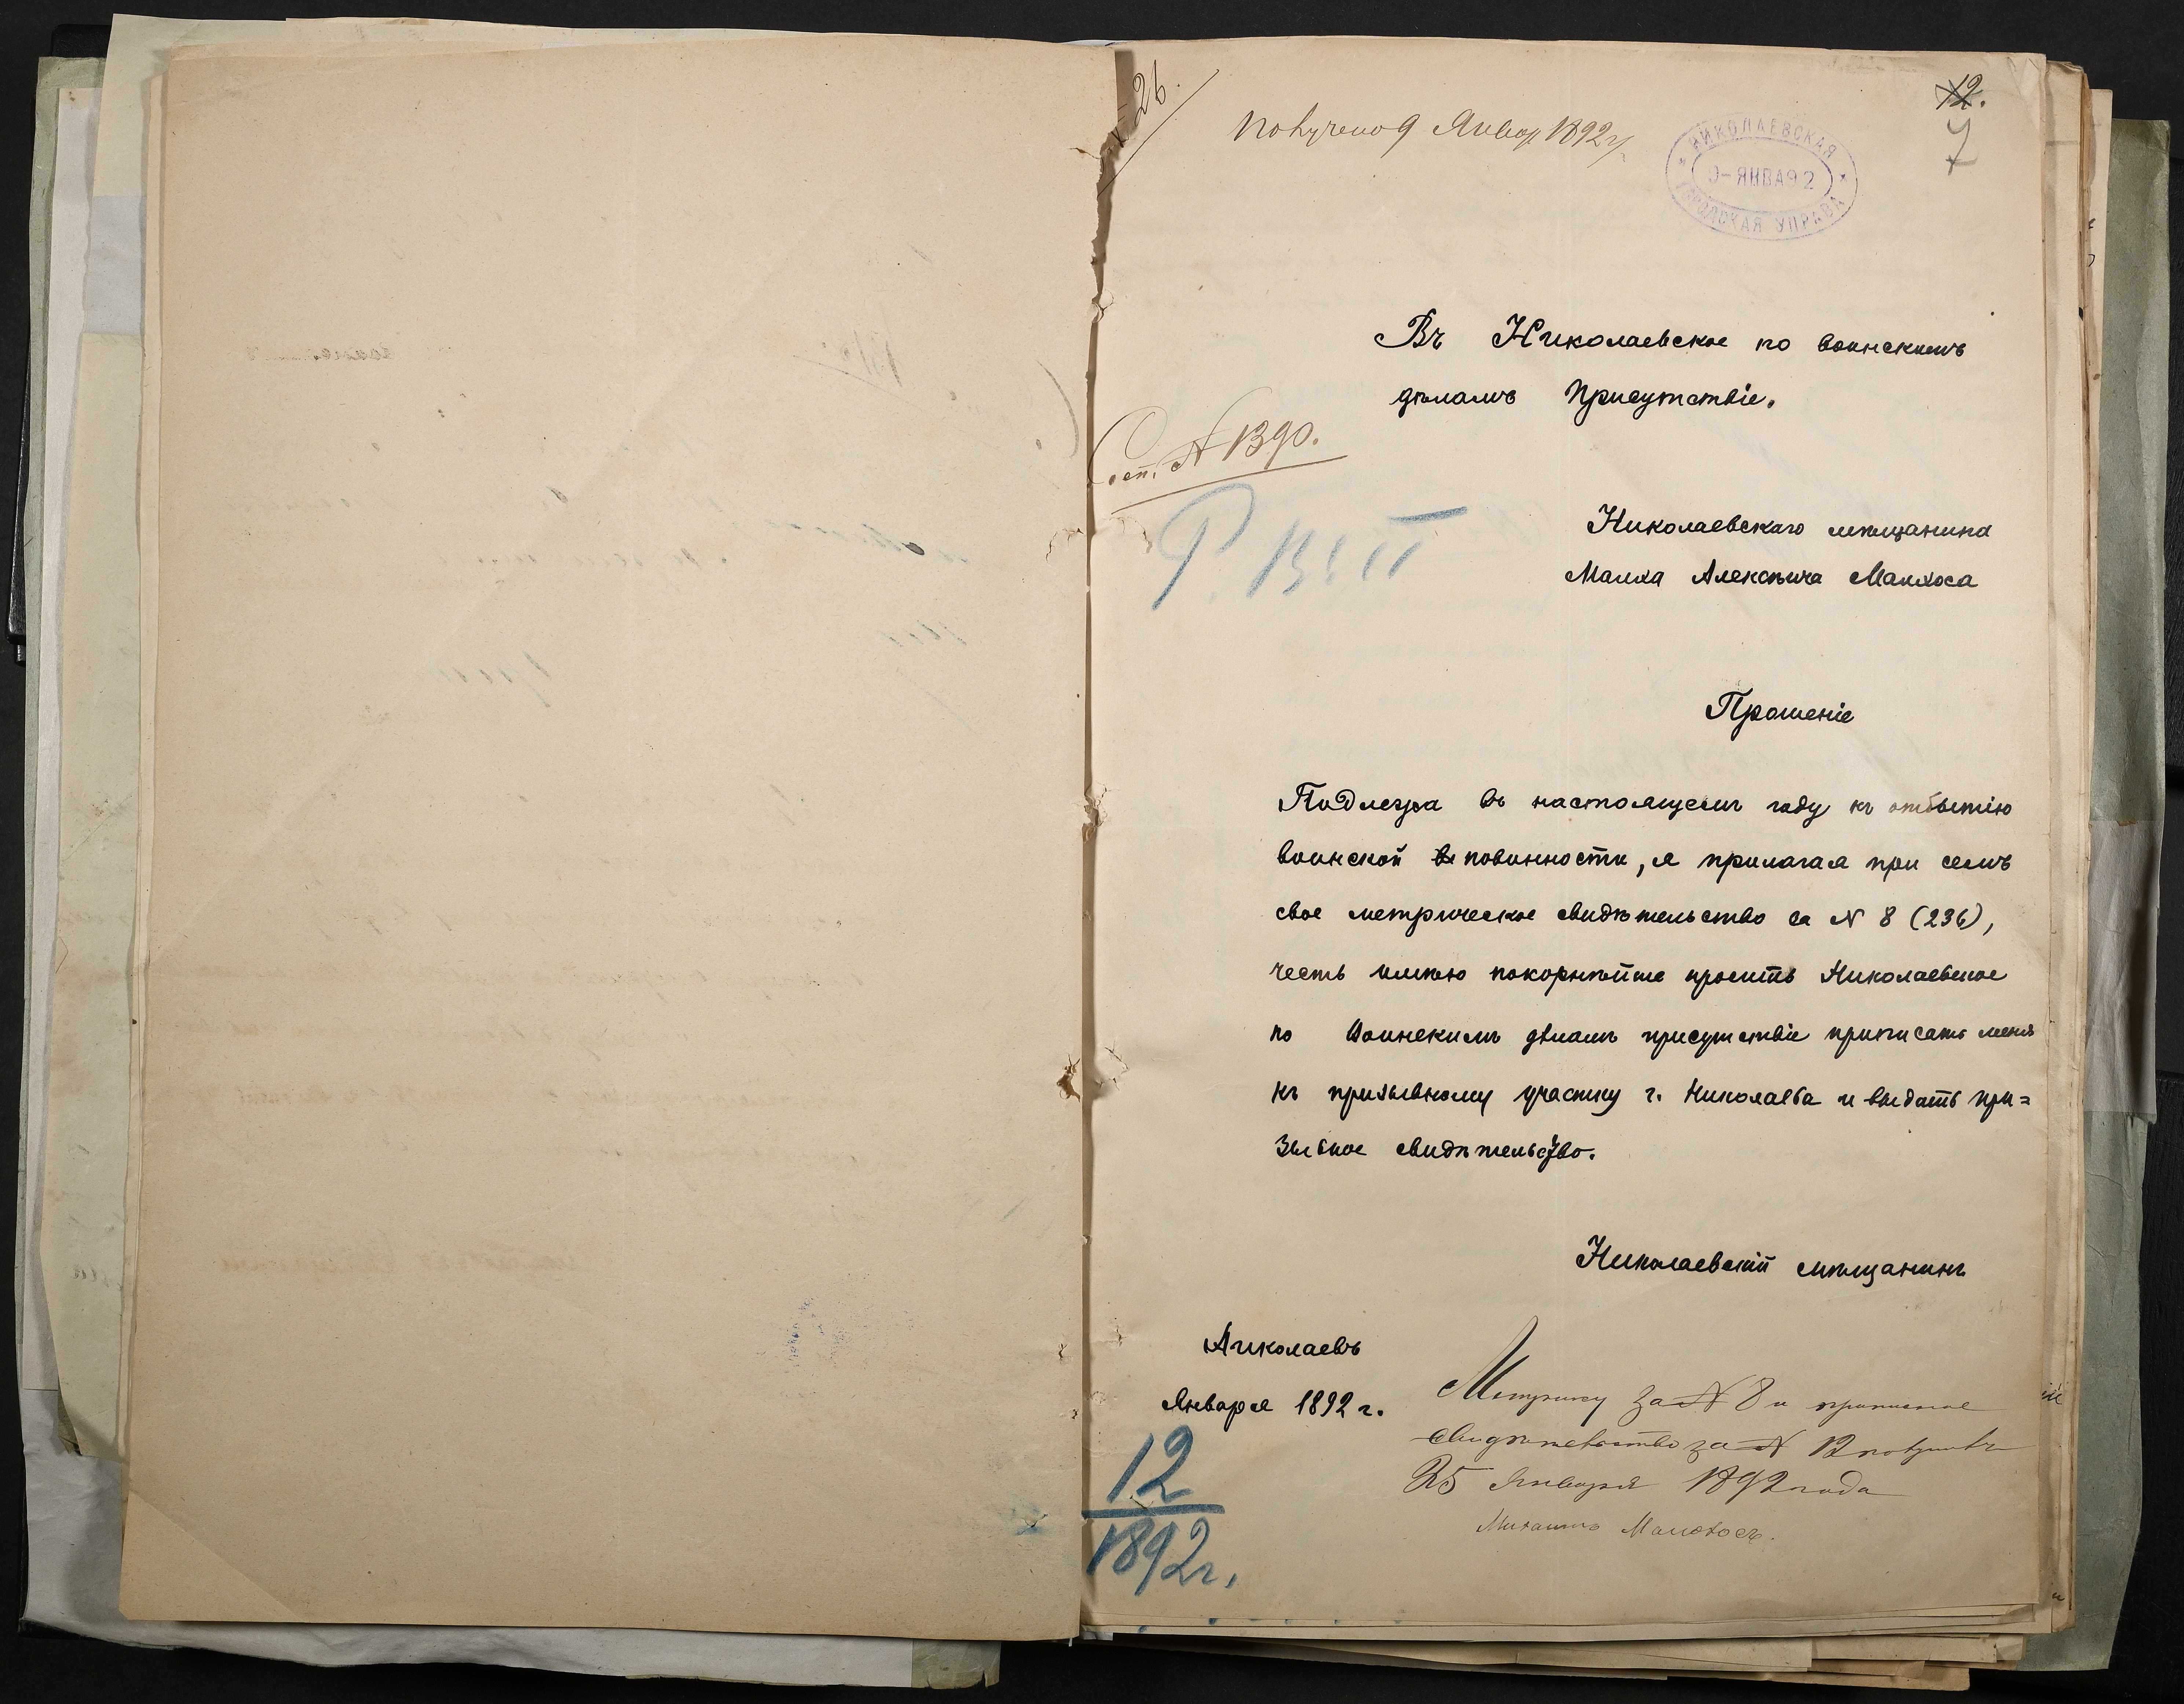 26.
12.
7
Получено 9 Январ 1892 г.
НИКОЛАЕВСКАЯ
9-ЯНВА92
ГОРОДСКАЯ УПРАВА
Въ Николаевское по воинскимъ
дѣламъ Присутствіе.
№ 1390.
Николаевскаго мѣщанина
Алексѣича
Прошеніе
Подлежа въ настоящемъ году къ отбытію
воинской повинности, я прилагая при семъ
свое метрическое свидѣтельство за N 8 (236),
честь имѣю покорнѣйше просить Николаевское
по Воинскимъ дѣламъ присутствіе приписать меня
къ призывному участку г. Николаева и выдать при=
зывное свидѣтельство.
Николаевскій мѣщанинъ
Николаевъ
Января 1892 г.
Метрику за № 8 и приписное
свидѣтельство за № 12 получилъ
25 Января 1892 года
12
1892 г.